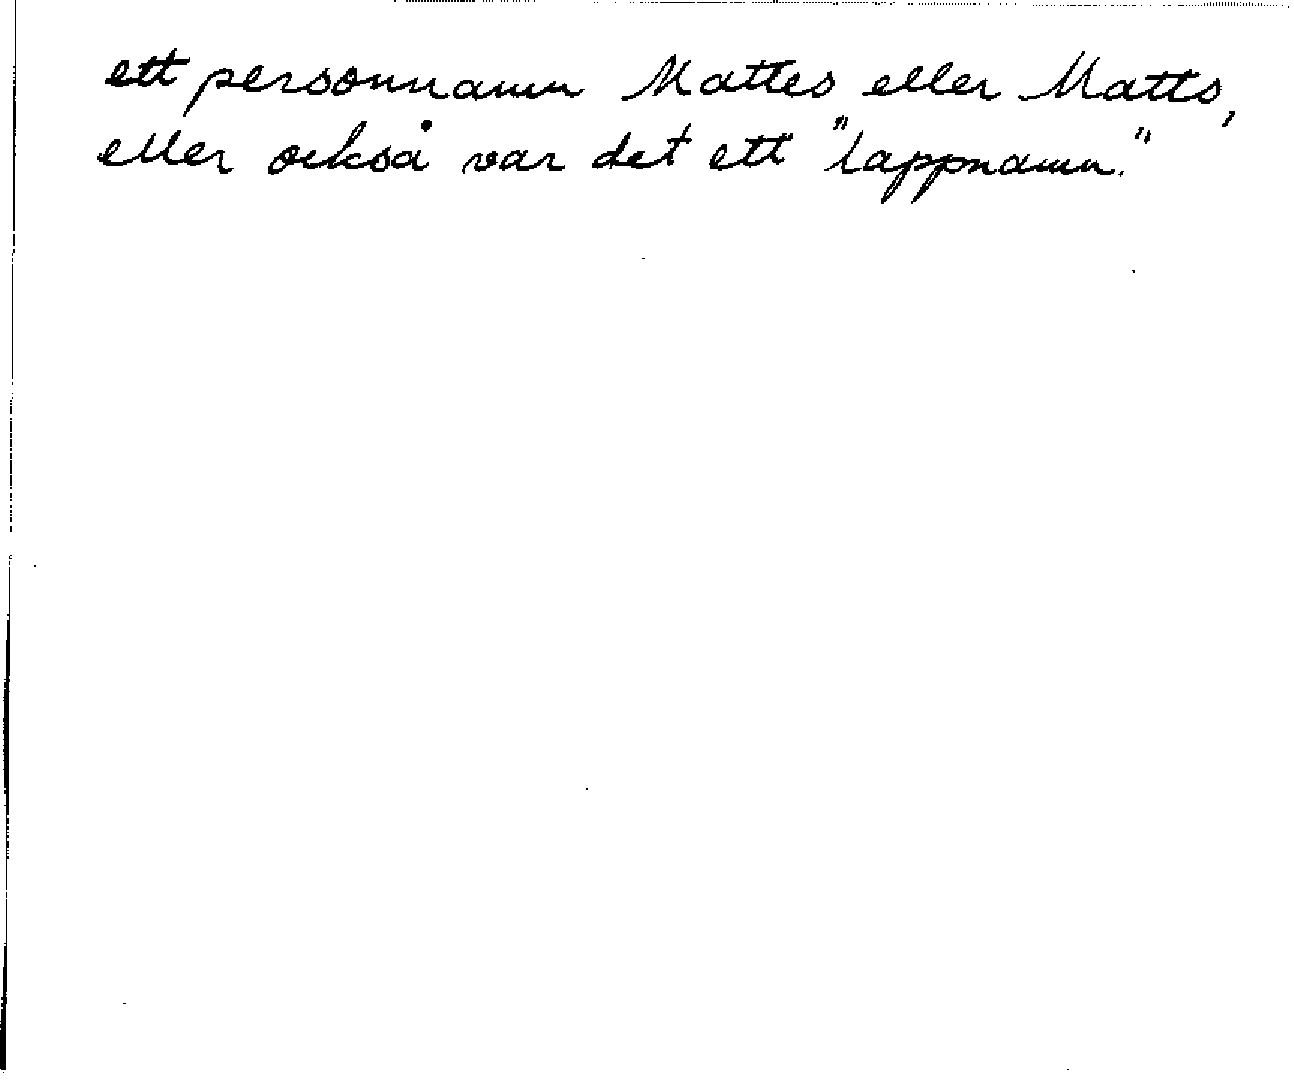 ett personnamn Mattes eller Matts,
eller också var det ett "lappnamn."